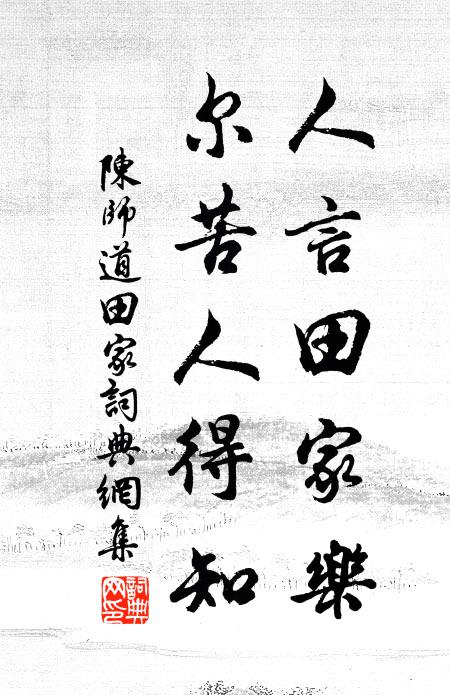 人言田家樂
尔苦人得知
陳師道田家詞典網集
詞典网印